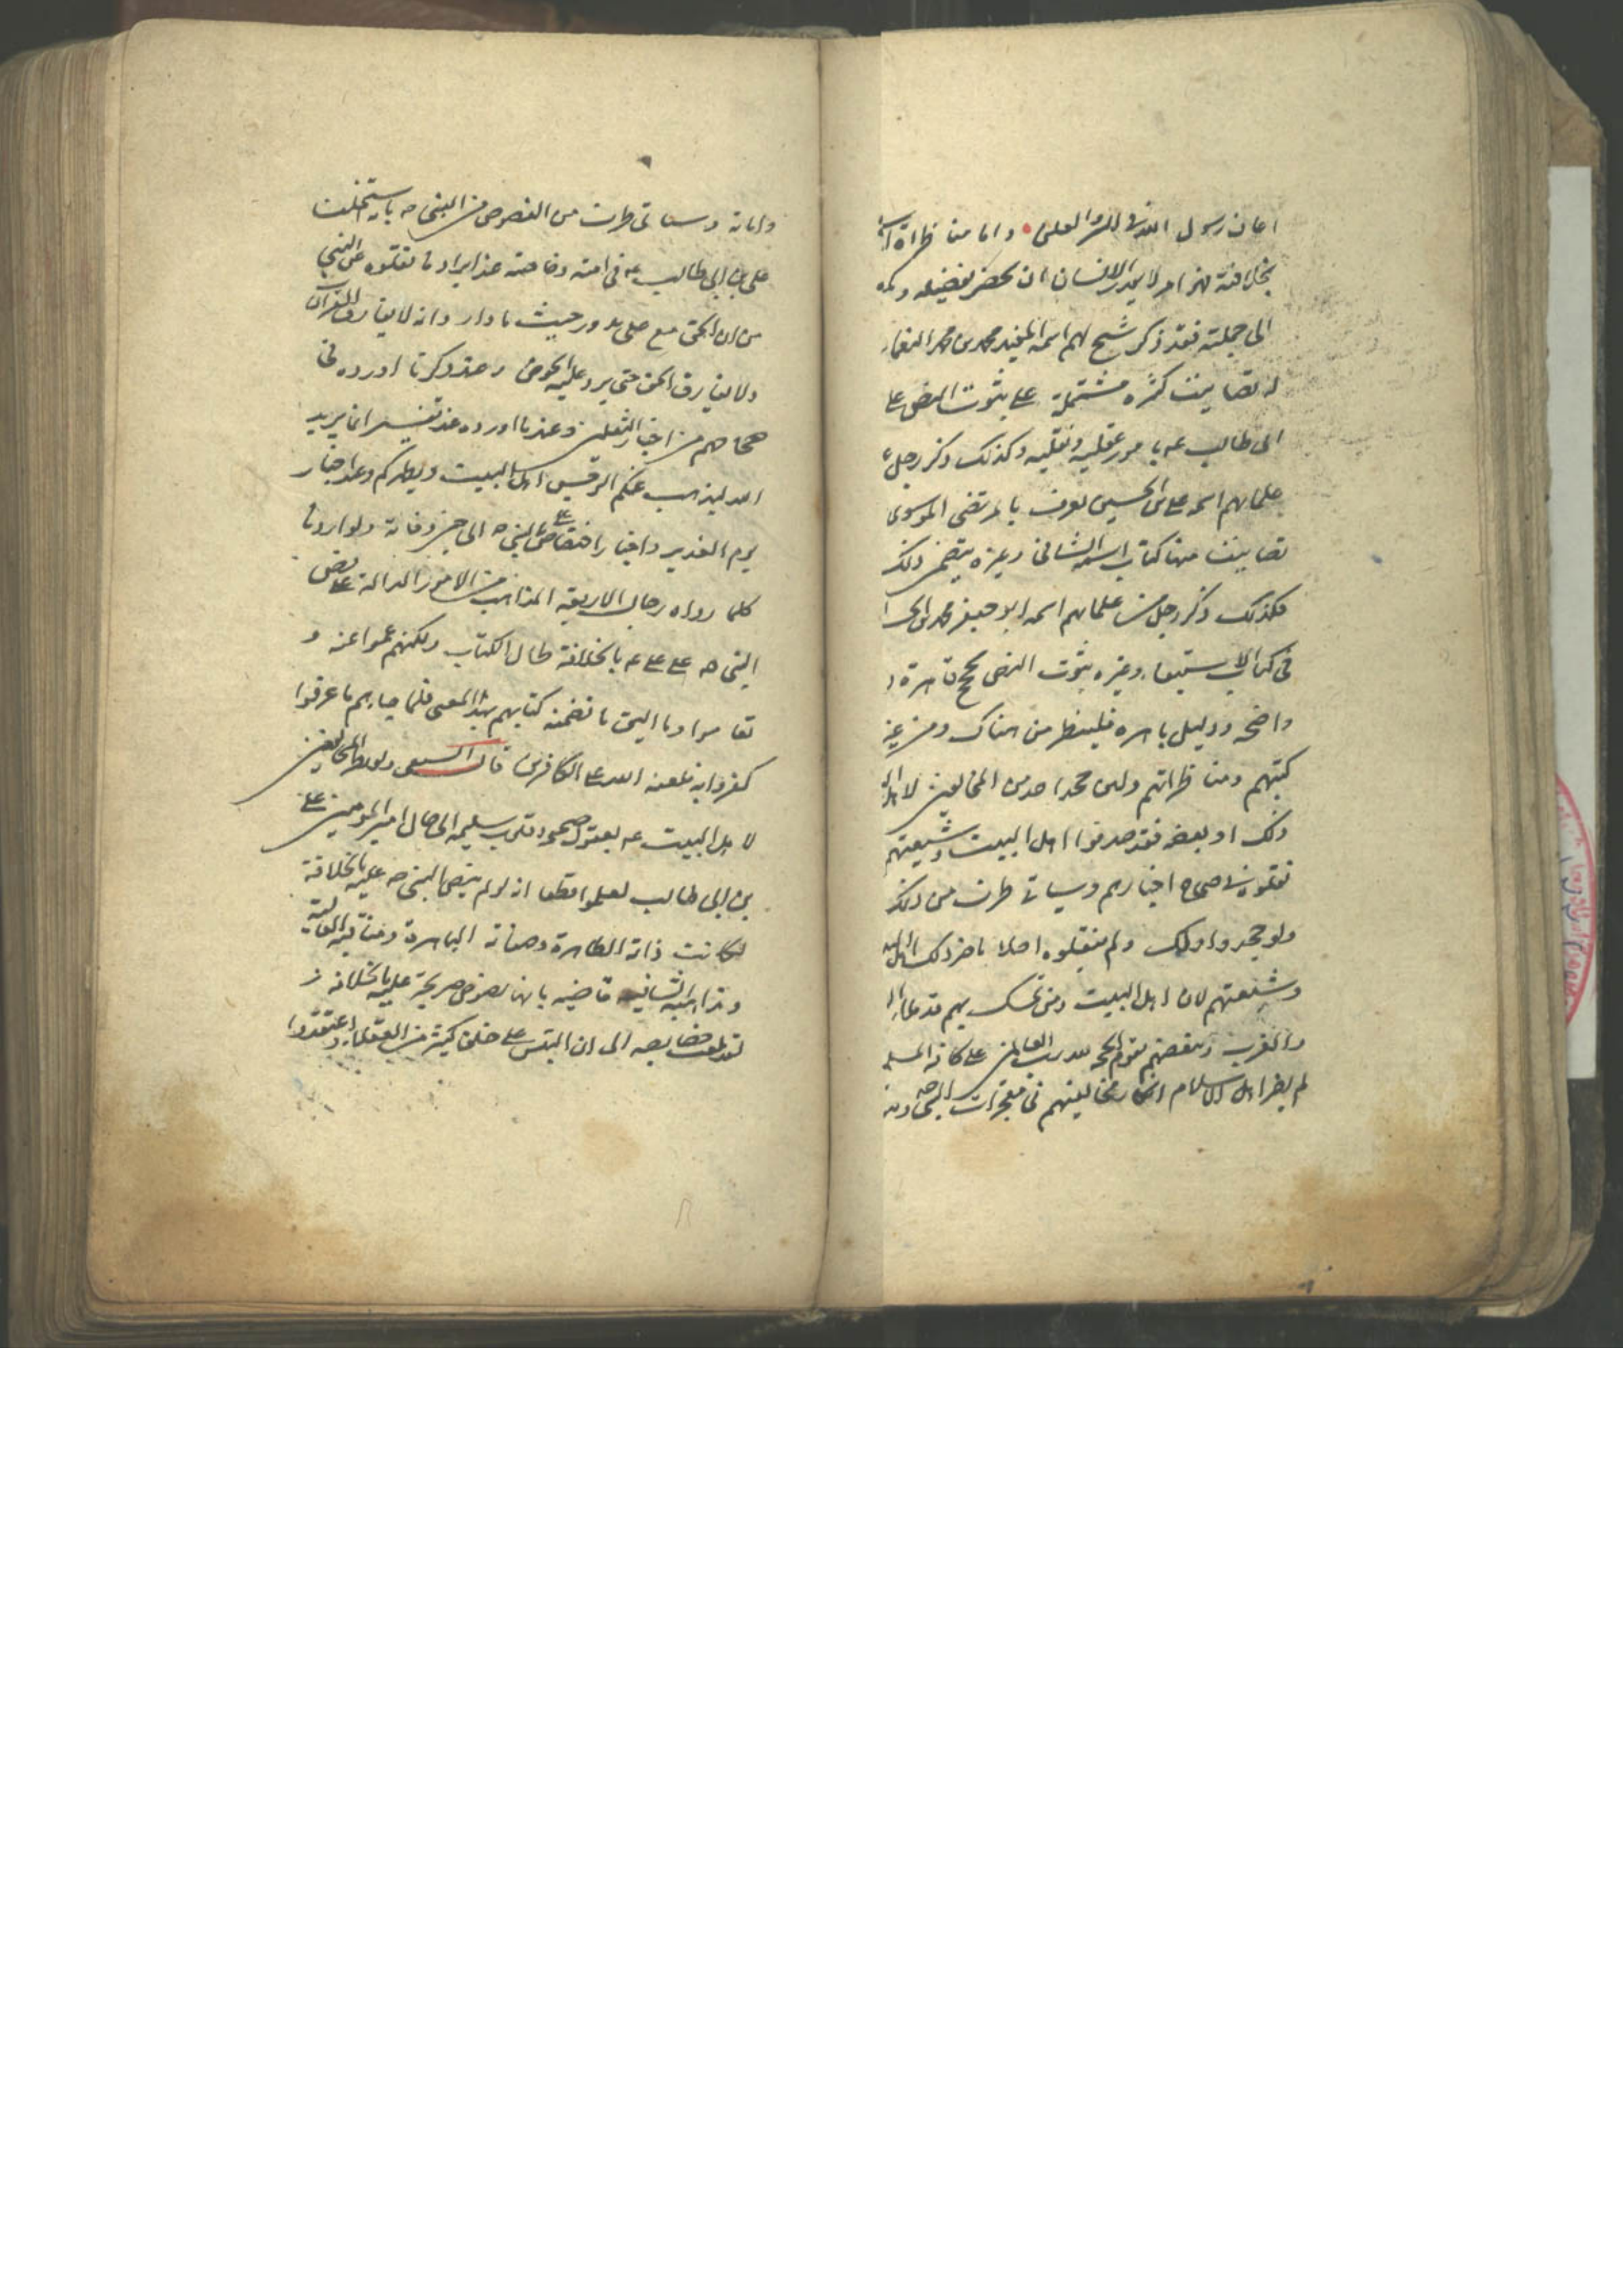 اعان رسول الله في السر والعلن واما مناظراة
بخلافته فهذا امر لا يقدر الانسان ان يحصر تفضيله
الى جملته فقد ذكر شيخ لهم اسمه المفيد محمد بن محمد النعمان
له تصانيف كثيره مشتملة على ثبوت النص على
ابى طالب عه بامور عقليه ونقليه وكذلك ذكر رجل
علمائهم اسمه على بن الحسين يعرف بالمرتضى الموسوى
تصانيف منها كتاب اسمه الشافى وغيره يتضمن ذلك
فكذلك ذكر رجل من علمائهم اسمه ابو جعفر محمد بن الحسن
فى كتاب الاستيفاء وغيره ثبوت النص بحجج قاهرة
واضحه ودليل باهره فلينظر من هناك ومن غير
كتبهم ومناظراتهم ولئن جحد احد من المخالفين لاهل
ذلك او بعضه فقد صدقوا اهل البيت وشيعتهم
نقلوه فى صحاح اخبارهم وسياتى طرف من ذلك
ولو جحدوا ولئك ولم ينقلوه اصلا ما ضر ذلك اهل
وشيعتهم لان اهل البيت ومن تمسك بهم قد ملأوا
والغرب وببعضهم تقوم الحجه لله رب العالمين على كافة المسلمين
لم يضر اهل الاسلام انكار مخالفيهم فى معجزات النبى ص
وامانة وسياتى طرف من النصوص من النبى ص بانه استخلف
على بن ابى طالب عه فى امته وخاصته عند ايراد ما نقلوه عن النبي
من ان الحق مع على يدور حيث ما دار وانه لا يفارق القرآن
ولا يفارق الحق حتى يرد عليه الحوض وعند ذكر ما اورده فى
صحاحهم من اخبار الثقلين وعند ما اورده عند تفسير انما يريد
الله ليذهب عنكم الرجس اهل البيت ويطهركم وعند اخبار
يوم الغدير واخبار اختصاص على بالنبى ص الى حين وفاته ولو اردنا
كلما رواه رجال الاربعة المذاهب من الامور الدالة على نص
النبى ص على على عه بالخلافة طال الكتاب ولكنهم عموا عنه و
تعاموا وما اليق ما تضمنه كتابهم بهذا المعنى فلما جاءهم ما عرفوا
كفروا به فلعنة الله على الكافرين قال السعى ولو نظر المخالفين
لاهل البيت عه بعقول صحيحه وقلوب سليمه الى حال امير المومنين على
بن ابى طالب لعلموا قطعا انه لو لم ينص النبى ص عليه بالخلافة
لكانت ذاته الطاهرة وصفاته الباهرة ومناقبه العالية
ومذاهبه الشافيه قاضيه بانها نصوص صريحة عليه بالخلافة و
لقد بلغت خصايصه الى ان التبس على خلق كثير من العقلاء واعتقدوا